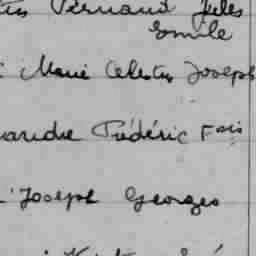 Fernand Jules
Emile
Marie Celestin Joseph
Frédéric Fois
Joseph Georges